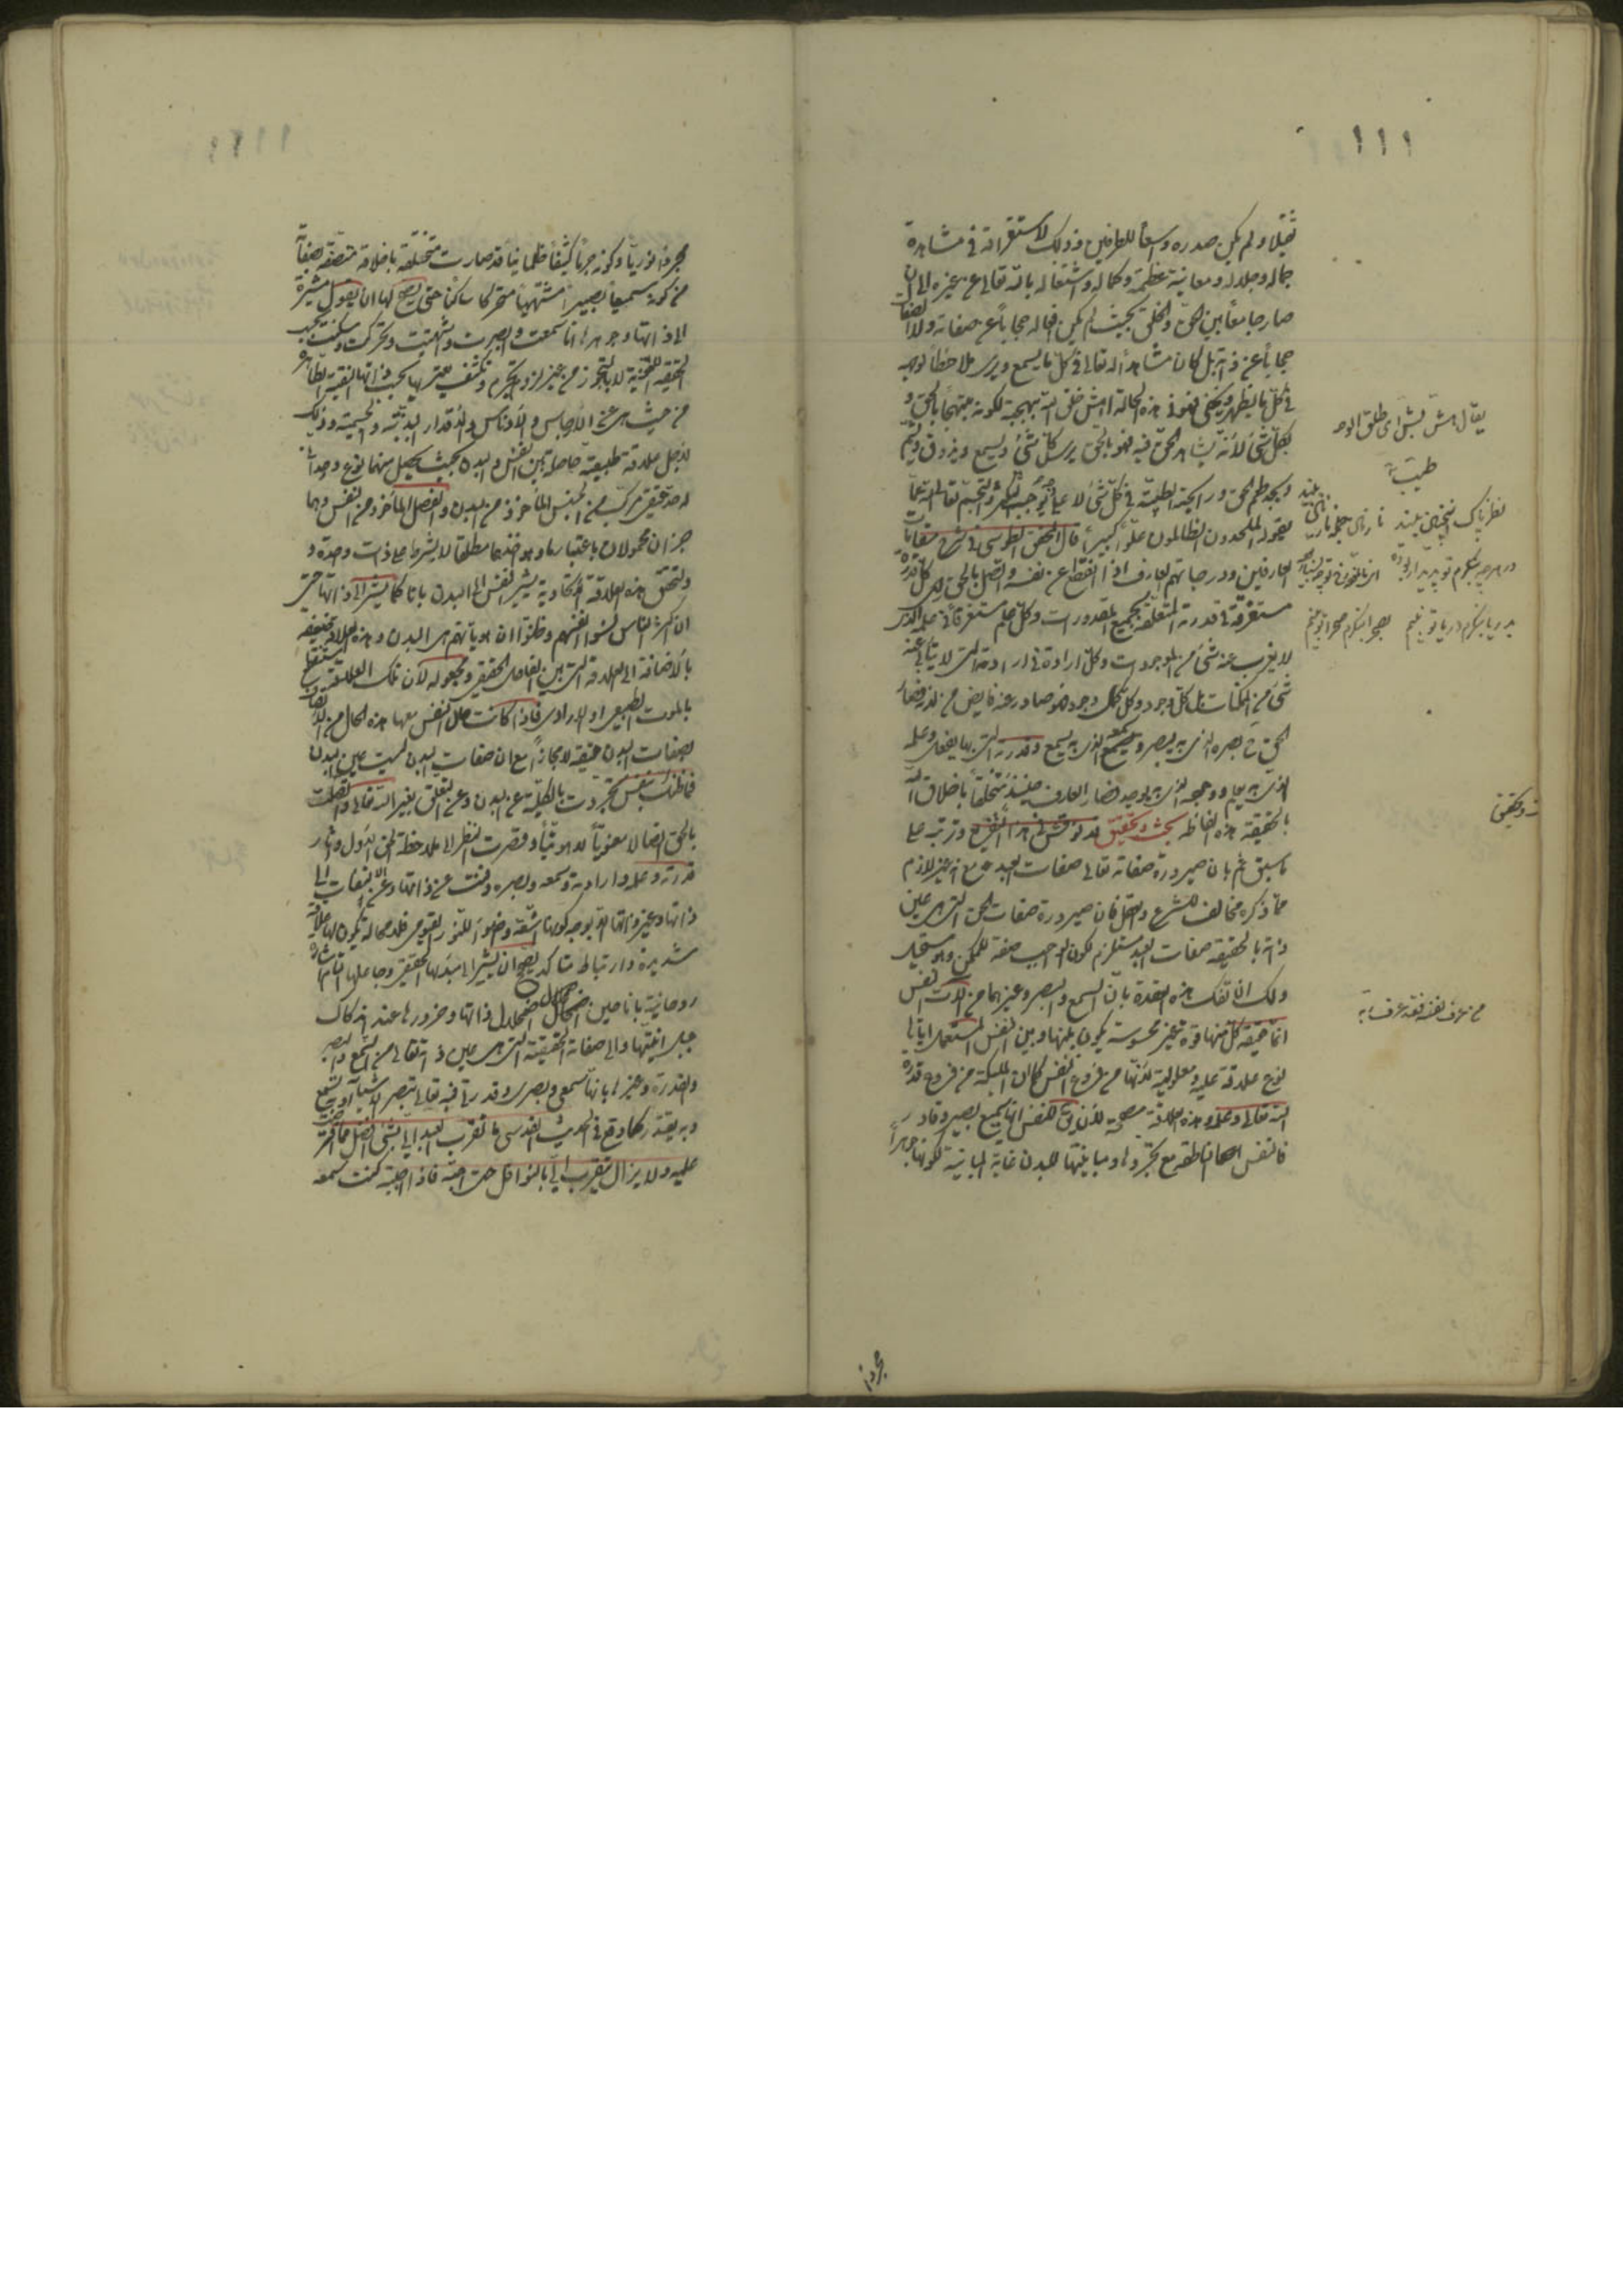 ١١١
ثقيلا ولم يكن صدره واسعا للطرفين وذلك لاستغراقه في مشاهدة
جماله وجلاله ومعاينة عظمته وكماله واشتغاله بالله تعالى عن غيره الى ان
صار جامعاً بين الحق والخلق بحيث لم يكن افعاله حجاباً عن صفاته ولا الصفات
حجاباً عن ذاته بل كان مشاهداً له تعالى في كل ما يسمع ويرى ملاحظاً لوجهه
في كل ما يظهر ويخفى فهو في هذه الحالة اهش خلق الله ببهجته لكونه مبتهجاً بالحق و
بكل شئ لانه يشاهد الحق فيه فهو بالحق يرى كل شئ ويسمع ويذوق ويشم
ويجد طعم الحق ورايحته الطيبة في كل شئ لا على وجه يوجب التكثر والتجسم تعالى الله عما
يقوله الملحدون الظالمون علوا كبيراً قال المحقق الطوسي في شرح مقامات
العارفين ودرجاتهم العارف اذا انقطع عن نفسه واتصل بالحق راى كل قدرة
مستغرقة في قدرته المتعلقة بجميع المقدورات وكل علم مستغرقاً في علمه الذى
لا يعزب عنه شئ من الموجودات وكل ارادة في ارادته التى لا يتابى عنه
شئ من الممكنات بل كل وجود وكل كمال وجود فهو صادر عنه فايض من لدنه فصار
الحق ح بصره الذى به يبصر وسمعه الذى به يسمع وقدرته التى بها يفعل وعلمه
الذى به يعلم ووجوده الذى به يوجد فصار العارف حينئذ متخلقاً باخلاق الله
بالحقيقة هذه الفاظه بحث وتحقيق قد نوقش في هذا التفريع وترتبه على
ما سبق ثم بان صيرورة صفاته تعالى صفات العبد مع انه غير لازم
مما ذكره مخالف للشرع والعقل فان صيرورة صفات الحق التى هى عين
ذاته بالحقيقة صفات العبد مستلزم لكون الواجب صفة للممكن وهو مستحيل
ولك ان تفك هذه العقدة بان السمع والبصر وغيرهما من آلات النفس
انما حقيقة كل منها قوة غير محسوسة يكون بينها وبين النفس المستعملة اياها
نوع علاقة علية ومعلولية لانها من فروع النفس كما ان الملكية من فروع قدرة
الله تعالى وعلمه وهذه العلاقة مصححة لان يق للنفس انها سميع بصير وقادر
فالنفس الناطقة مع تجردها ومباينتها للبدن غاية المباينة لكونها جوهراً
يقال هش بش اى طلق الوجه
طيبة
در هر چه بنكرم تو پديدار بوده
بدريا بنكرم دريا تو بينم بصحرا بنكرم صحرا تو بينم
بحث وتحقيق
من عرف نفسه فقد عرف ربه
مجرداً
مجرداً نورياً وكونه جرماً كثيفاً ظلمانيا قد صارت متخلقة باخلاقه متصفة بصفاته
من كونه سميعاً بصيراً مشتهياً متحركا ساكنا حتى يصح لها ان يقول مشيرة
الى ذاتها وجوهرها انا سمعت وابصرت واشتهيت وتحركت وسكنت بحسب
الحقيقة اللغوية لا بالتجوز من غير لزوم تجرم وتكثف يعتريها بحسب ذاتها النقية الطاهرة
من حيث هى عن الارجاس والادناس والاقذار البدنية والجسمية وذلك
لاجل علاقة طبيعية حاصلة بين النفس والبدن بحيث يحصل منهما نوع وحداني
له حد حقيقى مركب من الجنس الماخوذ من البدن والفصل الماخوذ من النفس وهما
جزءان محمولان باعتبار ما وهو اخذهما مطلقا لا بشرط على ذات واحدة و
لتحقق هذه العلاقة الاتحادية يشير النفس الى البدن بانا كما يشير الى ذاتها حتى
ان اكثر الناس نسوا انفسهم وظنوا ان هوياتهم هى البدن وهذه العلاقة ضعيفة
بالاضافة الى العلاقة التى بين الفاعل الحقيقى ومجعوله لان تلك العلاقة ستنقطع
بالموت الطبيعى او الارادى فاذا كانت حال النفس معها هذه الحال من الاتصاف
بصفات البدن حقيقة لا مجازاً مع ان صفات البدن ليست عين البدن
فما ظنك بنفس تجردت بالكلية عن البدن وعن التعلق بغير الله تعالى واتصلت
بالحق اتصالا معنوياً لاهوتياً وقصرت النظر الى ملاحظة الحق الاول وآثار
قدرته وعلمه وارادته وسمعه وبصره وفنت عن ذاتها وعن الالتفات الى
ذاتها وغير ذاتها الا بوجه كونها اشعة وضواً للنور القيومى فلا محالة يكون لها علاقة
شديدة وارتباط متاكد يصح ان يشير الى مبدئها الحقيقى وجاعلها التام اشارة
روحانية بانا حين اضمحلال ذاتها وخرورها عند اندكاك
جبل انيتها والى صفاته الحقيقية التى هى عين ذاته تعالى من السمع والبصر
والقدرة وغيرها بانها سمعى وبصرى وقدرتى فبه تعالى تبصر الاشياء وبه تسمع
وبه يقتدر كما وقع في الحديث القدسى ما تقرب العبد الى بشئ افضل مما افترضت
عليه ولا يزال يتقرب الى بالنوافل حتى احبه فاذا احببته كنت سمعه